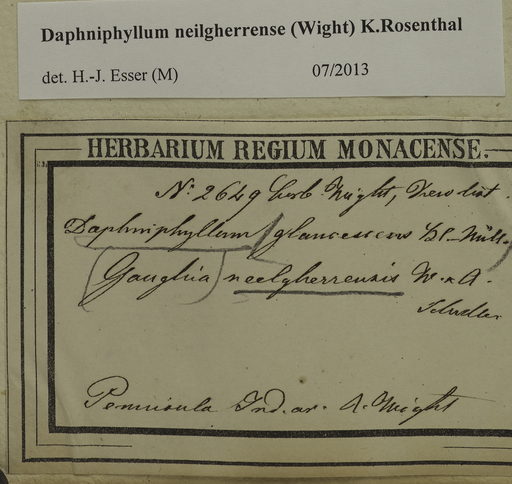 Daphniphyllum neilgherrense (Wight) K.Rosenthal
det. H.-J. Esser (M) 07/2013
HERBARIUM REGIUM MONACENSE.
No. 2649 herb. Wight,
Daphniphyllum glaucescens Bl. Müll.
Goughia neelgherrensis W. &
Peninsula Ind. or. Wight